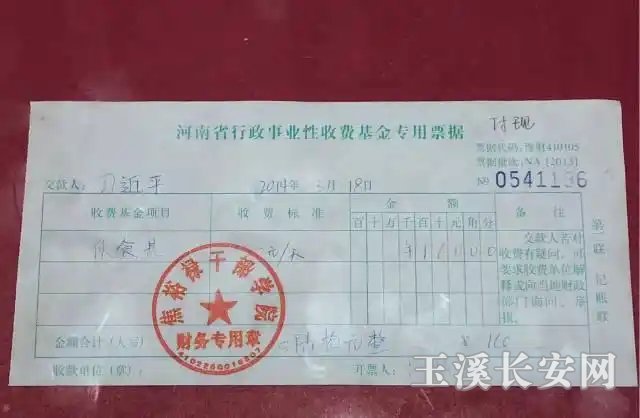 河南省行政事业性收费基金专用票据
付现
票据代码：豫财410105
票据批次：NA [2013]
№ 0541196
交款人：习近平 2014年 3月 18日
收费基金项目 收费标准 金额 备注
百十万千百十元角分
伙食费 元/天 ¥16000
交款人若对
收费有疑问，可
要求收费单位解
释或向当地财政
部门询问、举
报。
第 联 记账联
焦裕禄干部学院
财务专用章
金额合计（大写） 陆拾元整 ¥ 160
收款单位（章）： 开票人：
玉溪长安网